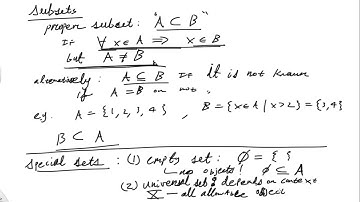 Subsets
proper subset: "A ⊂ B"
If ∀ x ∈ A ⟹ x ∈ B
but A ≠ B
alternatively: A ⊆ B If it is not known
if A = B or not.
eg. A = {1, 2, 3, 4}, B = {x ∈ A | x > 2} = {3, 4}
B ⊂ A
Special sets: (1) empty set: ∅ = { }
no objects! ∅ ⊆ A
(2) universal set: depends on context
X — all allowable object